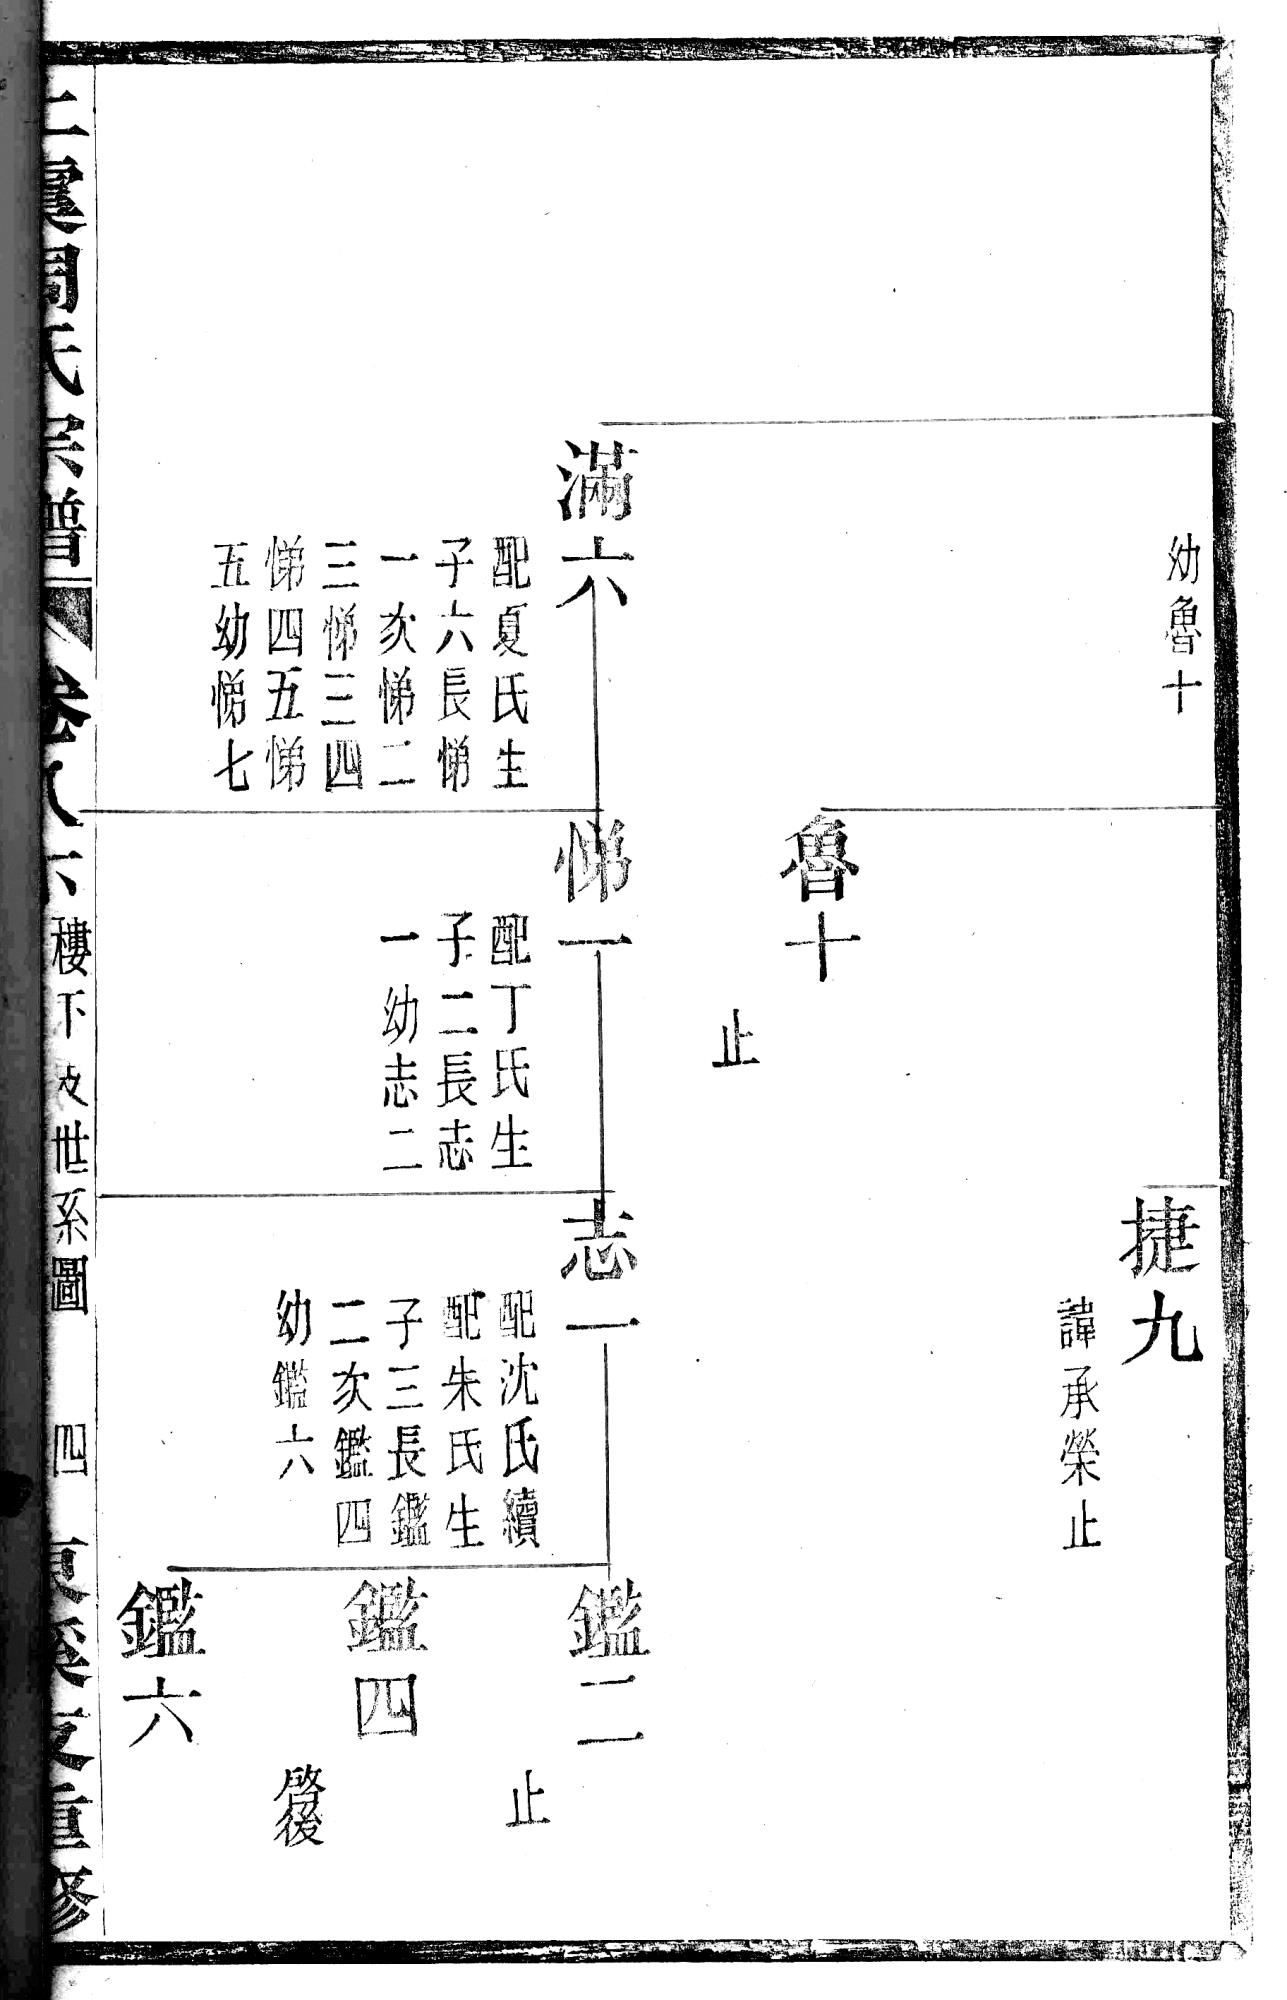 幼魯十
捷九
諱承榮止
魯十
止
滿六
配夏氏生
子六長悌
一次悌二
三悌三四
悌四五悌
五幼悌七
悌一
配丁氏生
子二長志
一幼志二
志一
配沈氏續
配朱氏生
子三長鑑
二次鑑四
幼鑑六
鑑二
止
鑑四
啓後
鑑六
上虞周氏宗譜 卷八六 樓下 世系圖 四
重修